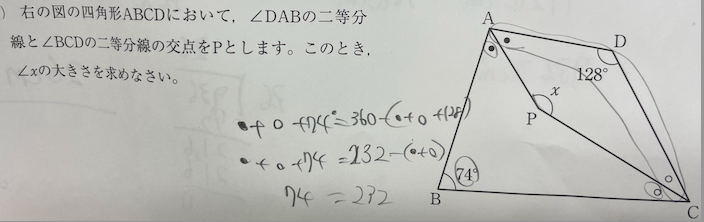 ) 右の図の四角形ABCDにおいて，∠DABの二等分
線と∠BCDの二等分線の交点をPとします。このとき，
∠xの大きさを求めなさい。
A
D
128°
x
P
•+o+74°=360-(•+o+128)
•+o+74=232-(•+o)
74=232
B
74°
C